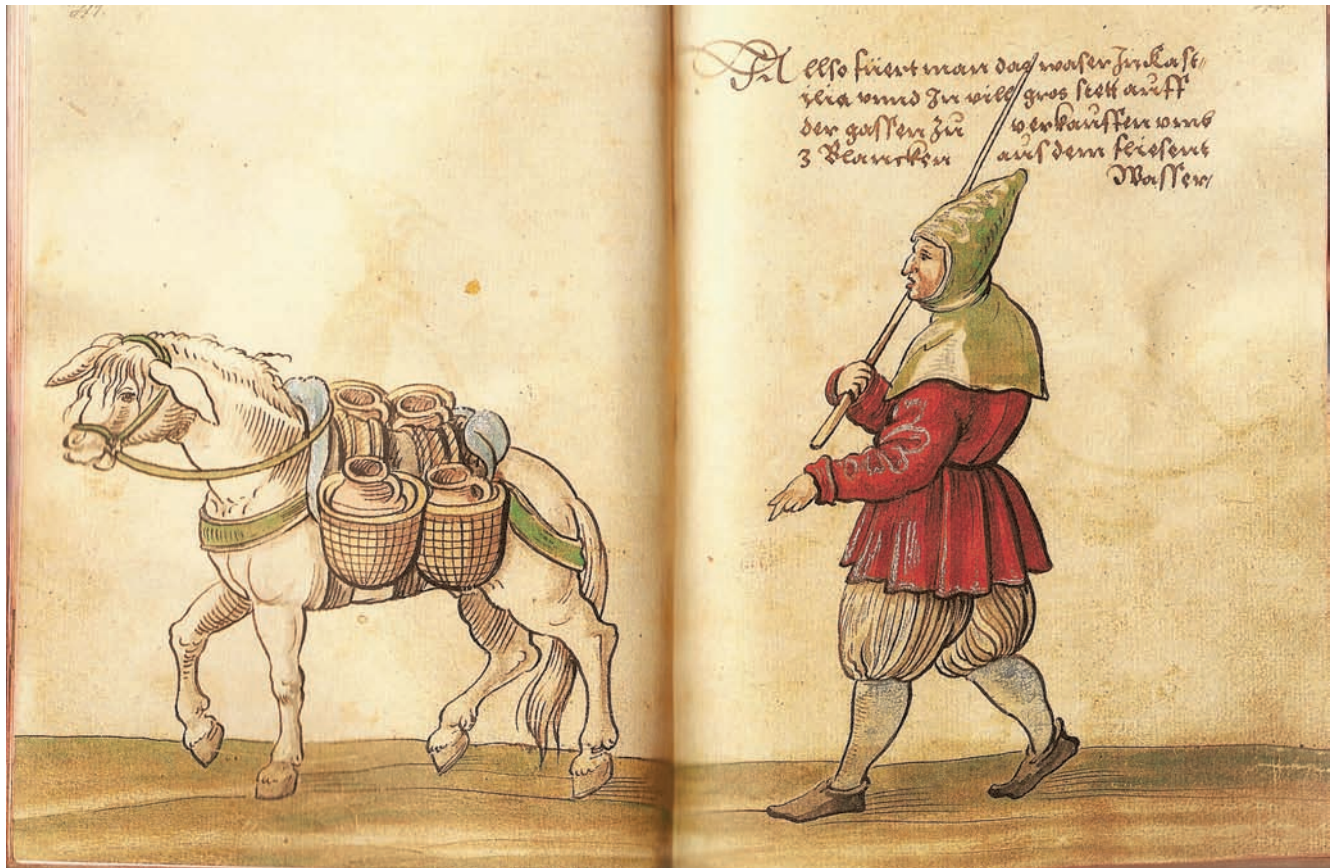 Allso füert man das waser In Kast,
ilia vnnd In vill gros stett auff
der gassen zü verkauffen vmb
3 Blancken aus dem fliesent
Wasser,